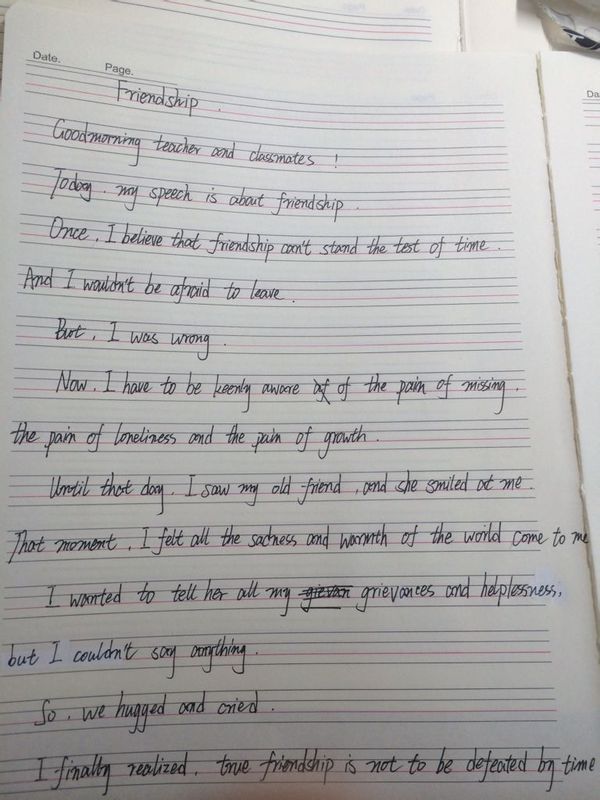 Date.
Page.
Da
Friendship .
Goodmorning teacher and classmates !
Today . my speech is about friendship .
Once , I believe that friendship can't stand the test of time .
And I wouldn't be afraid to leave .
But , I was wrong .
Now , I have to be keenly aware of the pain of missing ,
the pain of loneliness and the pain of growth .
Until that day , I saw my old friend , and she smiled at me .
That moment , I felt all the sadness and warmth of the world come to me
I wanted to tell her all my grievances and helplessness ,
but I couldn't say anything .
So , we hugged and cried .
I finally realized , true friendship is not to be defeated by time